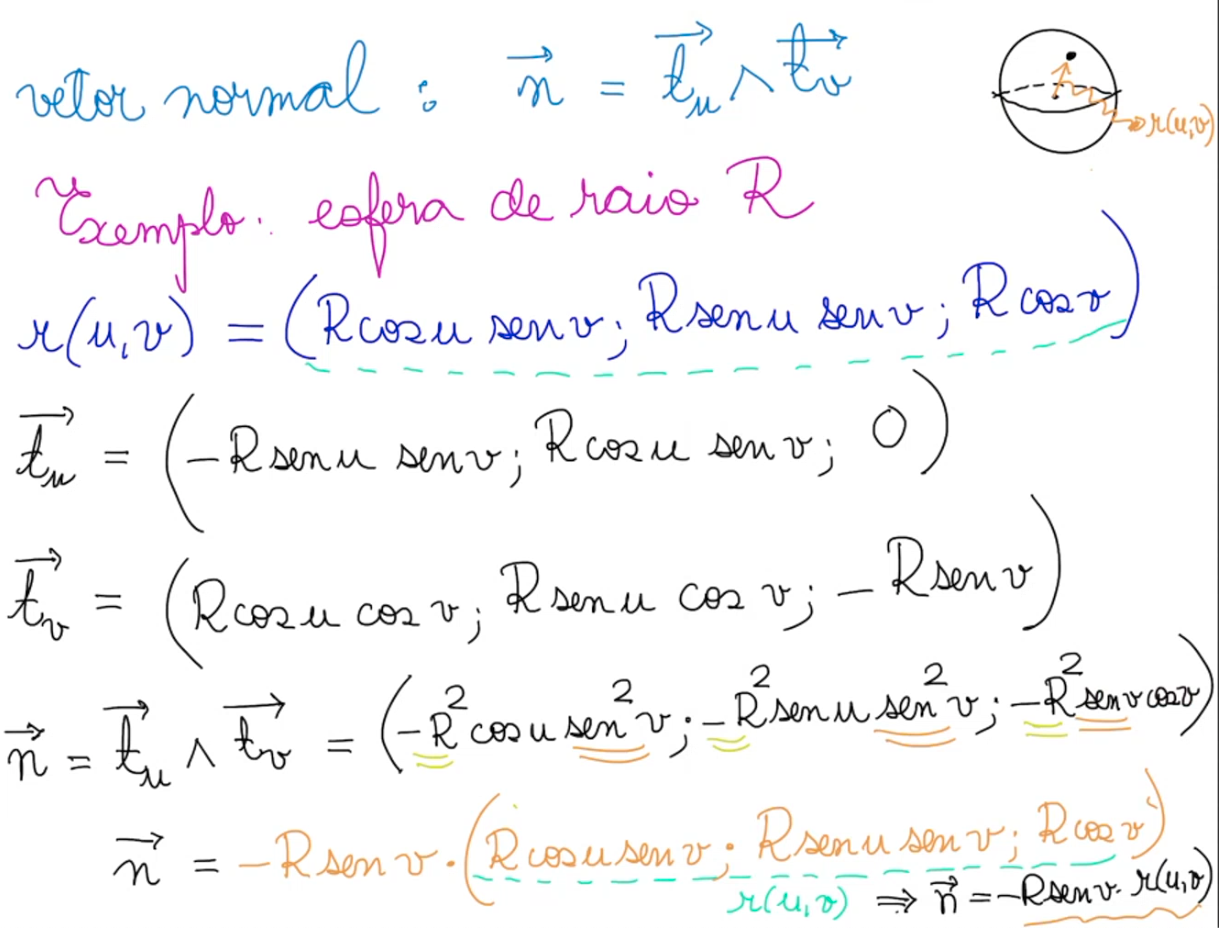 vetor normal : n⃗ = t⃗ᵤ ∧ t⃗ᵥ
r(u,v)
Exemplo: esfera de raio R
r(u,v) = (R cos u sen v; R sen u sen v; R cos v)
t⃗ᵤ = (-R sen u sen v; R cos u sen v; 0)
t⃗ᵥ = (R cos u cos v; R sen u cos v; -R sen v)
n⃗ = t⃗ᵤ ∧ t⃗ᵥ = (-R² cos u sen² v; -R² sen u sen² v; -R² sen v cos v)
n⃗ = -R sen v · (R cos u sen v; R sen u sen v; R cos v)
r(u,v) ⇒ n⃗ = -R sen v · r(u,v)